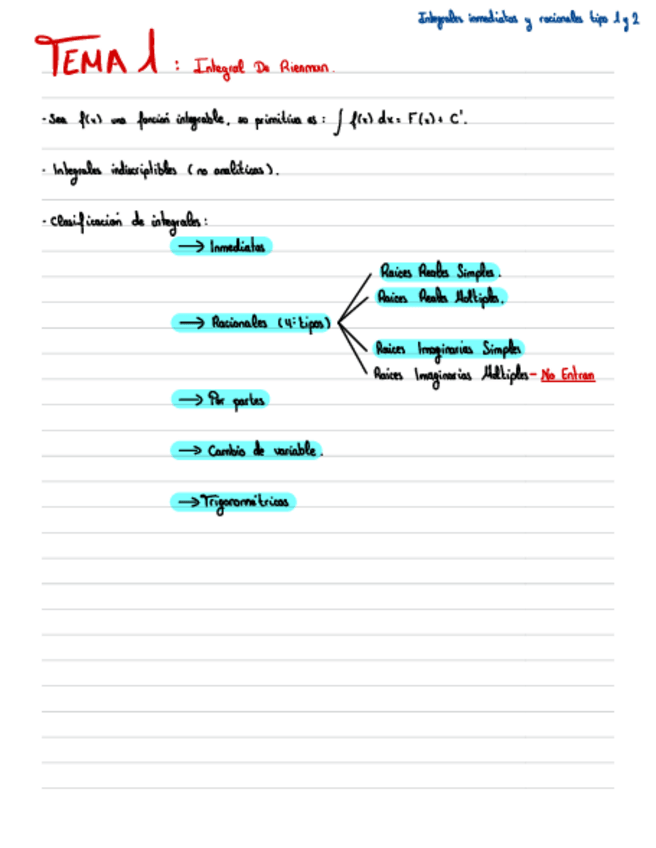 Integrales inmediatas y racionales tipo 1 y 2
TEMA 1 : Integral De Riemman.
- Sea f(x) una función integrable, so primitiva es : ∫ f(x) dx = F(x) + C'.
- Integrales indiscriptibles (no analíticas).
- Clasificación de integrales :
→ Inmediatas
Raices Reales Simples.
Raices Reales Moltiples.
→ Racionales (4: tipos)
Raices Imaginarias Simples
Raices Imaginarias Múltiples - No Entran
→ Por partes
→ Cambio de variable.
→ Trigonométricas